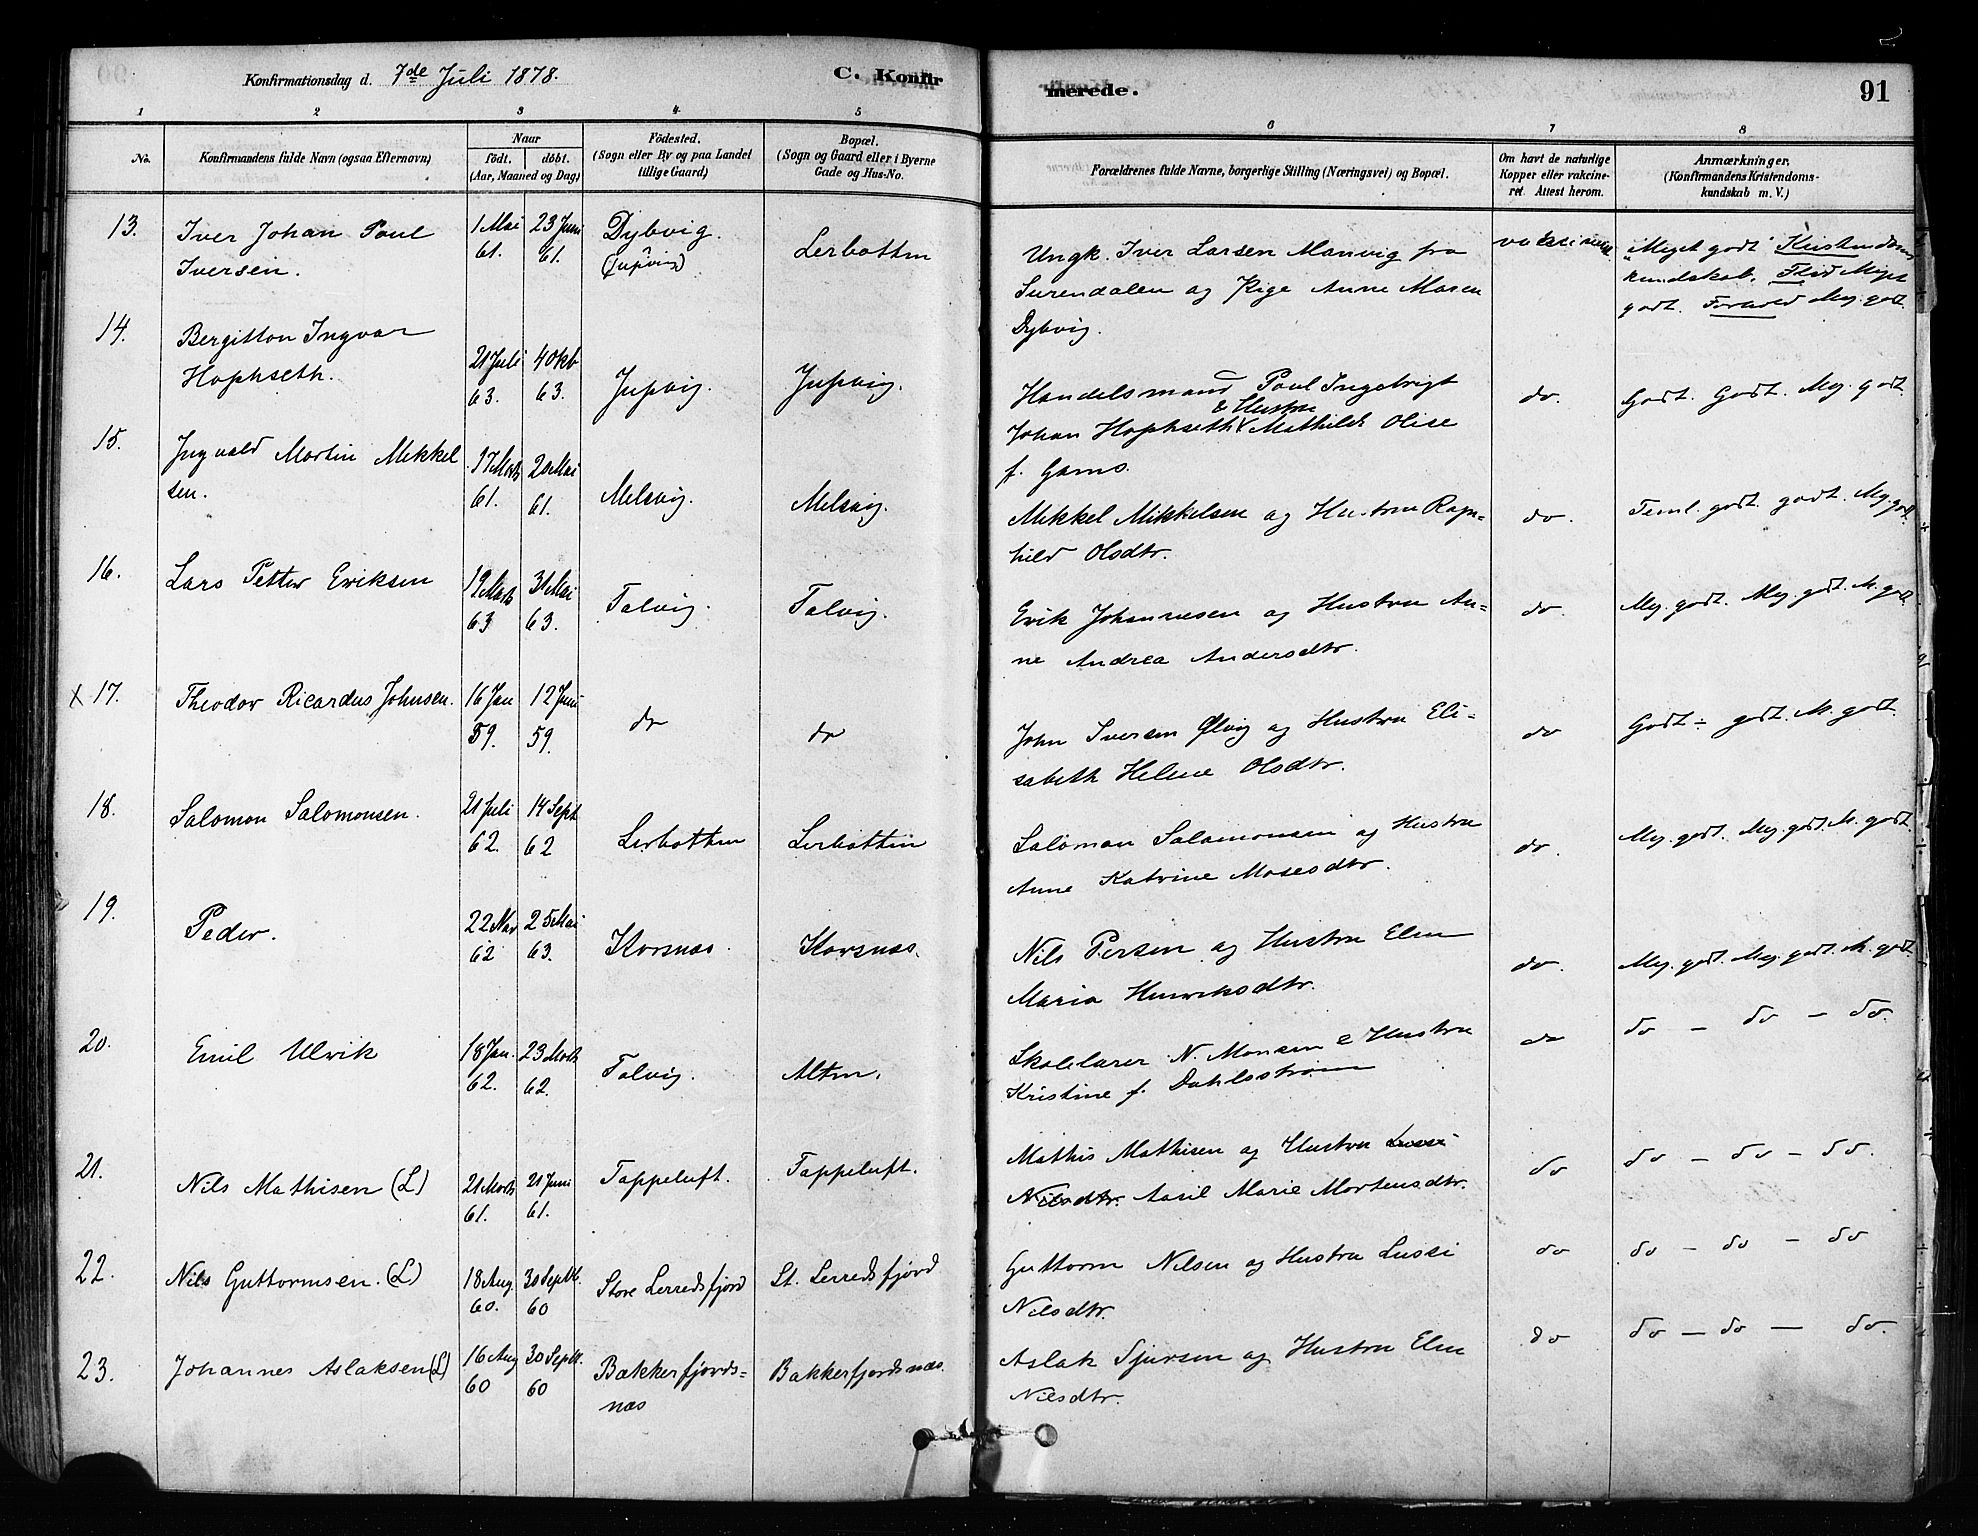 Konfirmationsdag d. 7de Juli 1878. C. Konfir
merede. 91
1 2 3 4 5 6 7 8
No. Konfirmandens fulde Navn (ogsaa Efternavn) Naar
födt. döbt.
(Aar, Maaned og Dag)
Födested.
(Sogn eller By og paa Landet
tillige Gaard)
Bopæl.
(Sogn og Gaard eller i Byerne
Gade og Hus-No.
Forældrenes fulde Navne, borgerlige Stilling (Næringsvei) og Bopæl.
Om havt de naturlige
Kopper eller vakcine-
ret. Attest herom.
Anmærkninger.
(Konfirmandens Kristendoms-
kundskab m. V.)
13. Iver Johan Paul 1 Mai 23 Juni Dybvig.
Iversen. 61. 61. (Jupvig) Lerbotten
Ungk. Iver Larsen Manvig fra
Surendalen og Pige Anne Maren
Dybvig.
Meget godt Kristendoms
kundskab. Flid Meget
godt. Forhold Meg. godt.
14. Bergitton Ingvar
Hophseth. 21 Juli 4 Okb
63. 63. Jupvig. Jupvig.
Handelsmand Paul Ingebrigt
& Hustru
Johan Hophseth Mathilde Olise
f. Gams.
do. Godt. Godt. Meg. godt.
15. Ingvald Martin Mikkel
sen. 17 Marts 20 Mai
61. 61. Melsvig. Melsvig.
Mikkel Mikkelsen og Hustru Ragn=
hild Olsdtr.
do. Teml. godt. godt. Meg. godt.
16. Lars Petter Eriksen 19 Marts 31 Mai
63 63. Talvig. Talvig.
Erik Johannesen og Hustru An=
ne Andrea Andersdtr.
do. Meg. godt. Meg. godt. M. godt.
x 17. Theodor Ricardus Johnsen. 16 Jan 12 Juni
59. 59. do do
John Iversen Ølvig og Hustru Eli=
sabeth Helene Olsdtr.
do Godt ÷ godt. M. godt.
18. Salomon Salomonsen. 21 Juli 14 Sept
62. 62 Lerbotten Lerbotten
Salomon Salamonsen og Hustru
Anne Katrine Mosesdtr.
do. Meg. godt. Meg. godt. M. godt.
19. Peder. 22 Nov 25 Mai
62 63. Korsnæs. Korsnæs.
Nils Persen og Hustru Elen
Maria Henriksdtr.
do. Meg. godt. Meg. godt. M. godt.
20. Emil Ulvik 18 Jan. 23 Marts
62. 62. Talvig. Alten.
Skolelærer N. Monsen & Hustru
Kristine f. Dahlsstrøm
do do — do — do.
21. Nils Mathisen (L) 21 Marts 21 Juni
61. 61. Tappeluft. Tappeluft.
Mathis Mathisen og Hustru Lussi
Nilsdtr. Marie Mortensdtr.
do do — do — do.
22. Nils Guttormsen. (L) 18 Aug. 30 Septb.
60. 60 Store Lerredsfjord St. Lerredsfjord
Guttorm Nilsen og Hustru Lussi
Nilsdtr.
do do — do — do
23. Johannes Aslaksen (L) 16 Aug 30 Septb.
60 60 Bækkerfjords=
næs Bakkerfjordsnæs.
Aslak Sjursen og Hustru Elen
Nilsdtr.
do do — do — do.